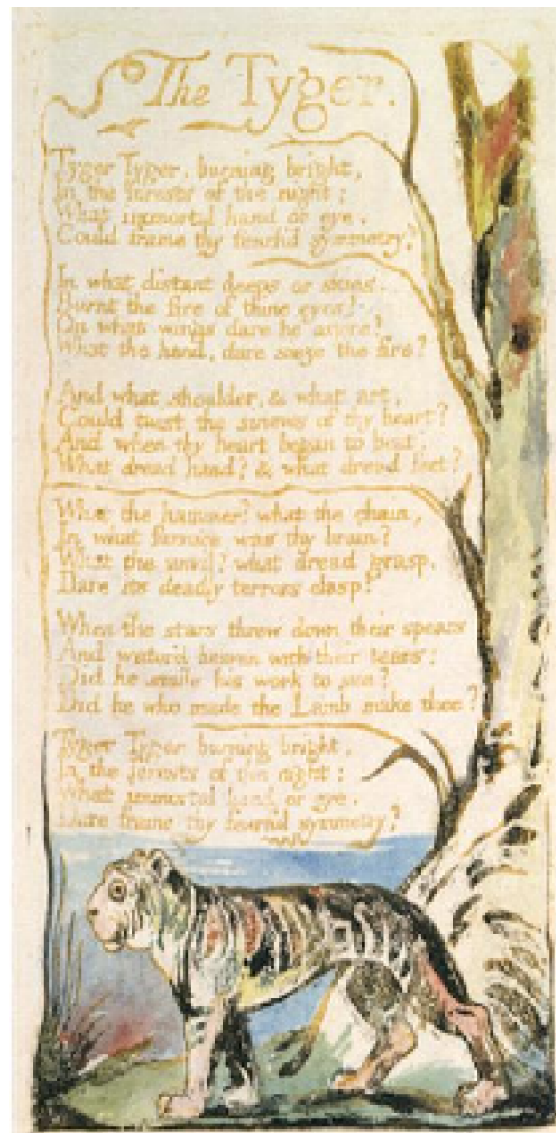 The Tyger.
Tyger Tyger, burning bright,
In the forests of the night:
What immortal hand or eye,
Could frame thy fearful symmetry?
In what distant deeps or skies.
Burnt the fire of thine eyes?
On what wings dare he aspire?
What the hand, dare seize the fire?
And what shoulder, & what art,
Could twist the sinews of thy heart?
And when thy heart began to beat,
What dread hand? & what dread feet?
What the hammer? what the chain,
In what furnace was thy brain?
What the anvil? what dread grasp,
Dare its deadly terrors clasp!
When the stars threw down their spears
And water'd heaven with their tears:
Did he smile his work to see?
Did he who made the Lamb make thee?
Tyger Tyger burning bright,
In the forests of the night:
What immortal hand or eye,
Dare frame thy fearful symmetry?